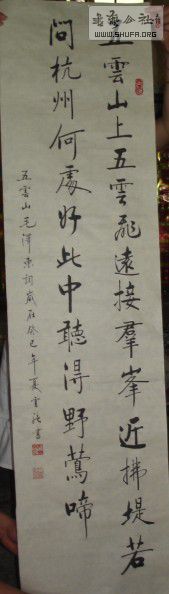 五雲山上五雲飛遠接羣峯近拂堤若
問杭州何處好此中聽得野鶯啼
五雲山毛澤東詞歲在癸巳年夏雲
書
WWW.SHUFA.ORG